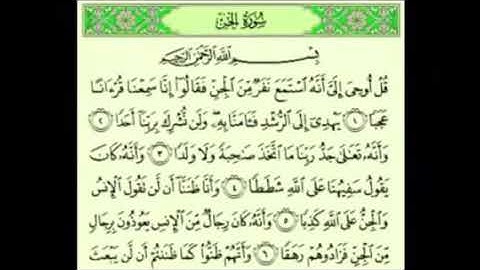 سُورَةُ الجِنِّ
بِسْمِ اللَّهِ الرَّحْمَٰنِ الرَّحِيمِ
قُلْ أُوحِىَ إِلَىَّ أَنَّهُ ٱسْتَمَعَ نَفَرٌ مِّنَ ٱلْجِنِّ فَقَالُوٓا۟ إِنَّا سَمِعْنَا قُرْءَانًا
عَجَبًا ١ يَهْدِىٓ إِلَى ٱلرُّشْدِ فَـَٔامَنَّا بِهِۦ وَلَن نُّشْرِكَ بِرَبِّنَآ أَحَدًا ٢
وَأَنَّهُۥ تَعَٰلَىٰ جَدُّ رَبِّنَا مَا ٱتَّخَذَ صَٰحِبَةً وَلَا وَلَدًا ٣ وَأَنَّهُۥ كَانَ
يَقُولُ سَفِيهُنَا عَلَى ٱللَّهِ شَطَطًا ٤ وَأَنَّا ظَنَنَّآ أَن لَّن تَقُولَ ٱلْإِنسُ
وَٱلْجِنُّ عَلَى ٱللَّهِ كَذِبًا ٥ وَأَنَّهُۥ كَانَ رِجَالٌ مِّنَ ٱلْإِنسِ يَعُوذُونَ بِرِجَالٍ
مِّنَ ٱلْجِنِّ فَزَادُوهُمْ رَهَقًا ٦ وَأَنَّهُمْ ظَنُّوا۟ كَمَا ظَنَنتُمْ أَن لَّن يَبْعَثَ